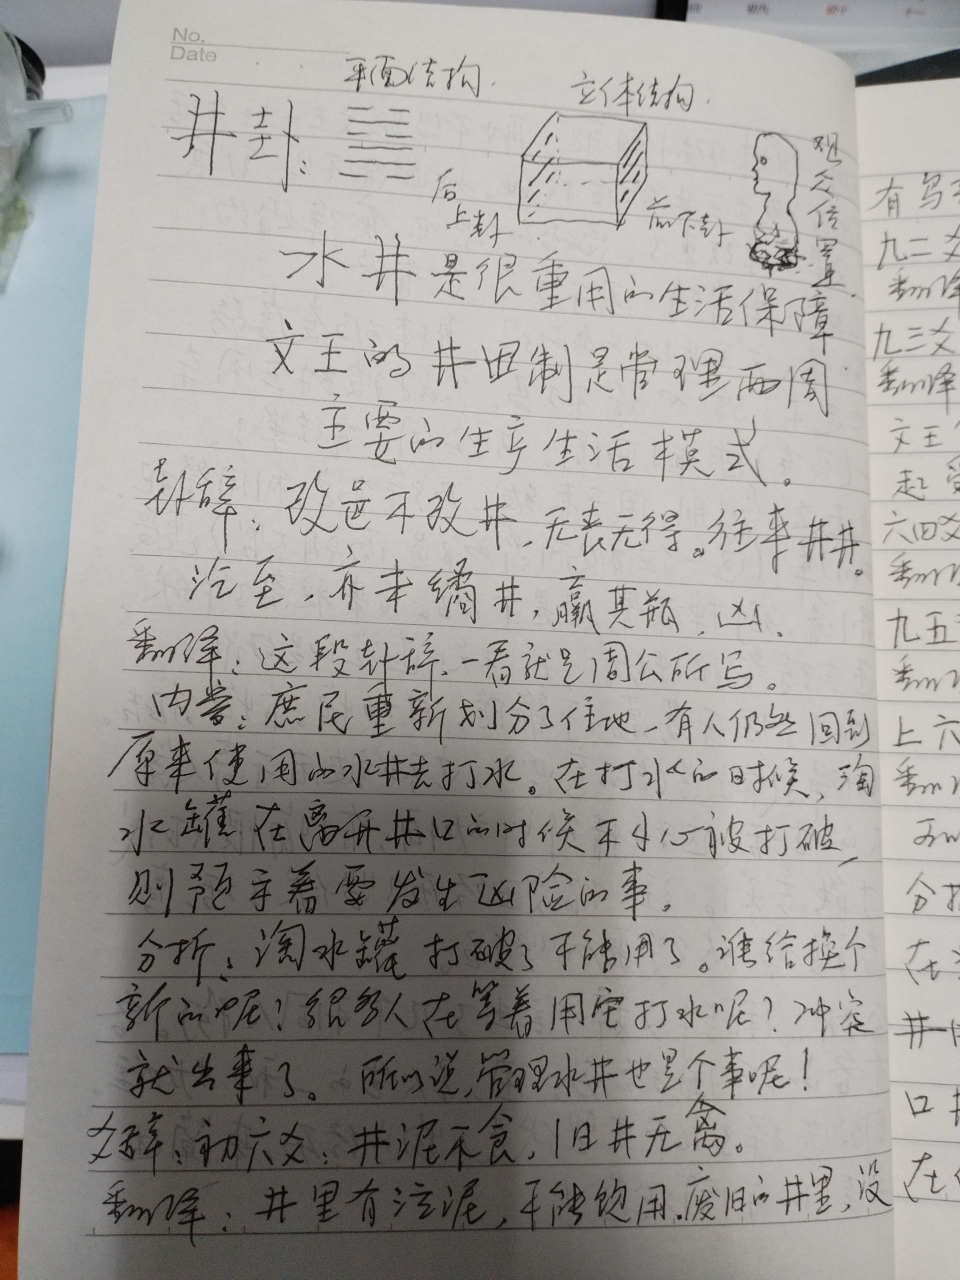 No.
Date
平面结构. 立体结构.
井卦:
后上卦 前下卦
观众位置.
水井是很重用的生活保障
文王的井田制是管理西周
主要的生产生活模式。
卦辞:改邑不改井,无丧无得。往来井井。
汔至,亦未繘井,羸其瓶,凶.
翻译:这段卦辞,一看就是周公所写。
内容:庶民重新划分了住地,有人仍然回到
原来使用的水井去打水。在打水的时候,淘
水罐在离开井口的时候不小心被打破,
则预示着要发生凶险的事。
分析:淘水罐打破了不能用了。谁给换个
新的呢?很多人在等着用它打水呢?冲突
就出来了。所以说,管理水井也是个事呢!
爻辞:初六爻:井泥不食,旧井无禽。
翻译:井里有泥,不能饮用.废旧的井里,没
有
九二爻
翻译
九三爻
翻译
文王
起
六四爻
翻译
九五
翻译
上六
翻译
分析
在
井
口
在